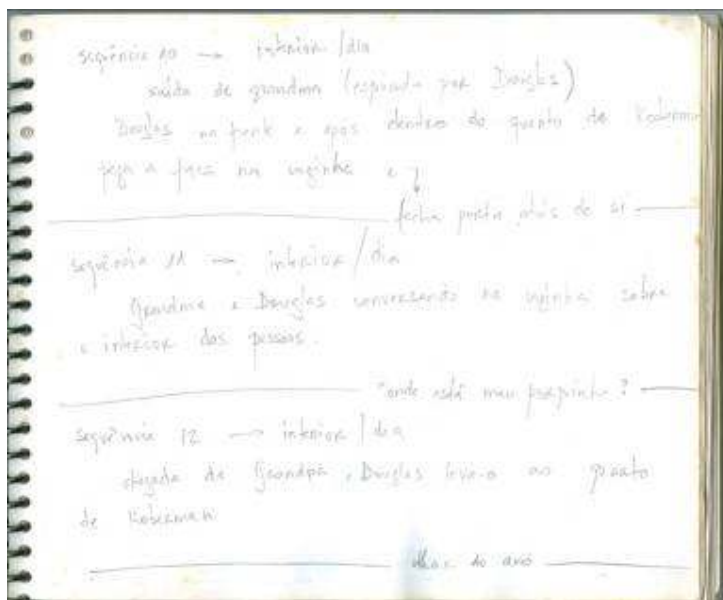 sequência 10 → interior/dia
saída de grandma (espiada por Douglas)
Douglas na porta e após dentro do quarto de Koberman
pega a faca na cozinha e ↓
fecha porta atrás de si
sequência 11 → interior/dia
Grandma e Douglas conversando na cozinha sobre
o interior das pessoas.
"onde está meu porquinho?
sequência 12 → interior/dia
chegada de Grandpa. Douglas leva-o ao quarto
de Koberman
olhar do avô